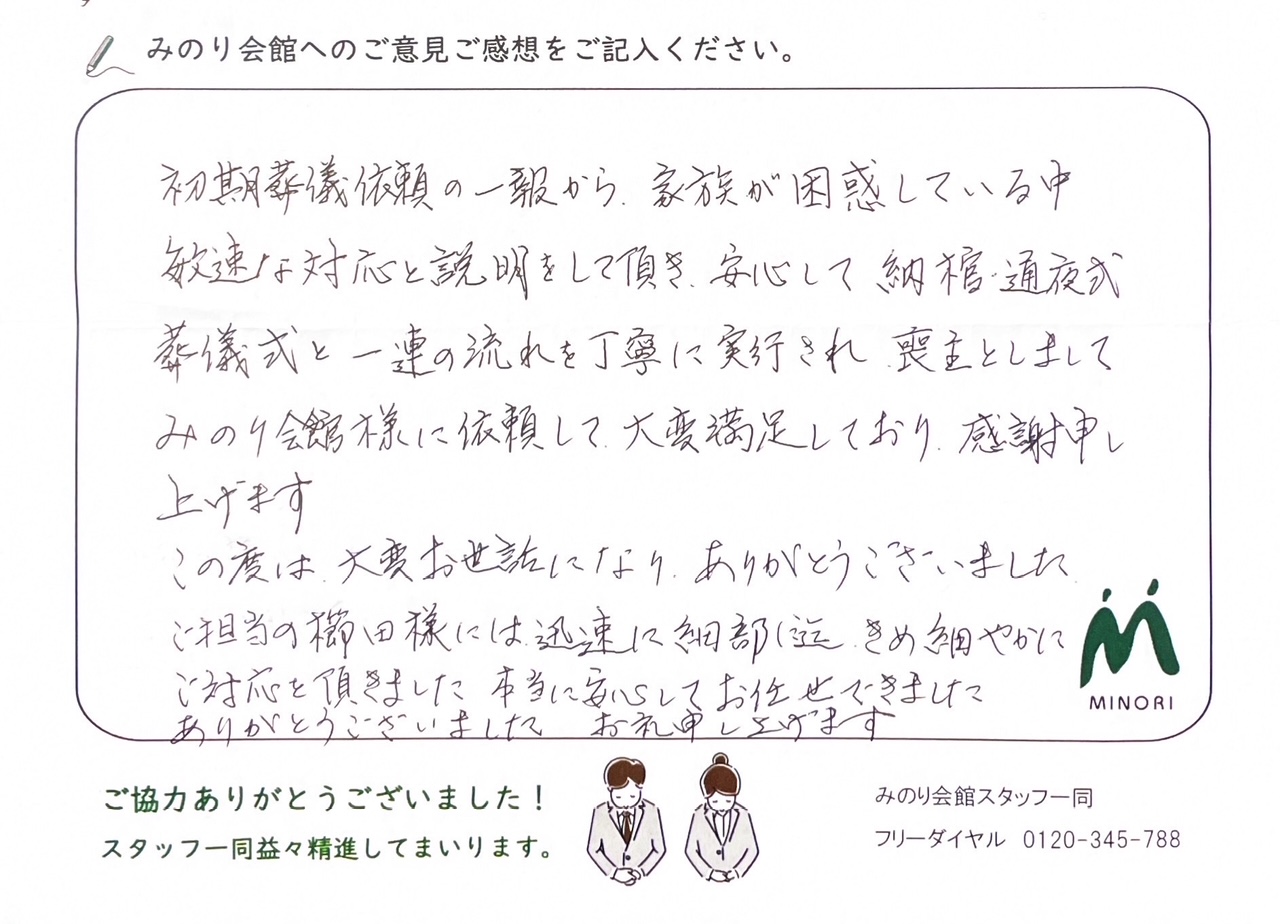 みのり会館へのご意見ご感想をご記入ください。
初期葬儀依頼の一報から、家族が困惑している中
敏速な対応と説明をして頂き、安心して納棺・通夜式
葬儀式と一連の流れを丁寧に実行され、喪主としまして
みのり会館様に依頼して、大変満足しており、感謝申し
上げます
この度は、大変お世話になり、ありがとうございました、
ご担当の櫛田様には、迅速に細部に迄、きめ細やかに
ご対応を頂きました 本当に安心してお任せできました
ありがとうございました お礼申し上げます
MINORI
ご協力ありがとうございました！
スタッフ一同益々精進してまいります。
みのり会館スタッフ一同
フリーダイヤル 0120-345-788